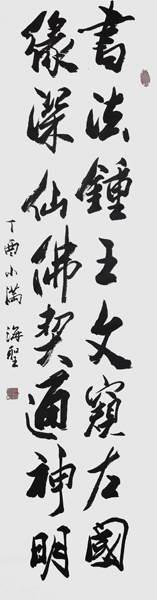 書法鍾王文窺左國
緣深仙佛契通神明
丁酉小滿 海聖